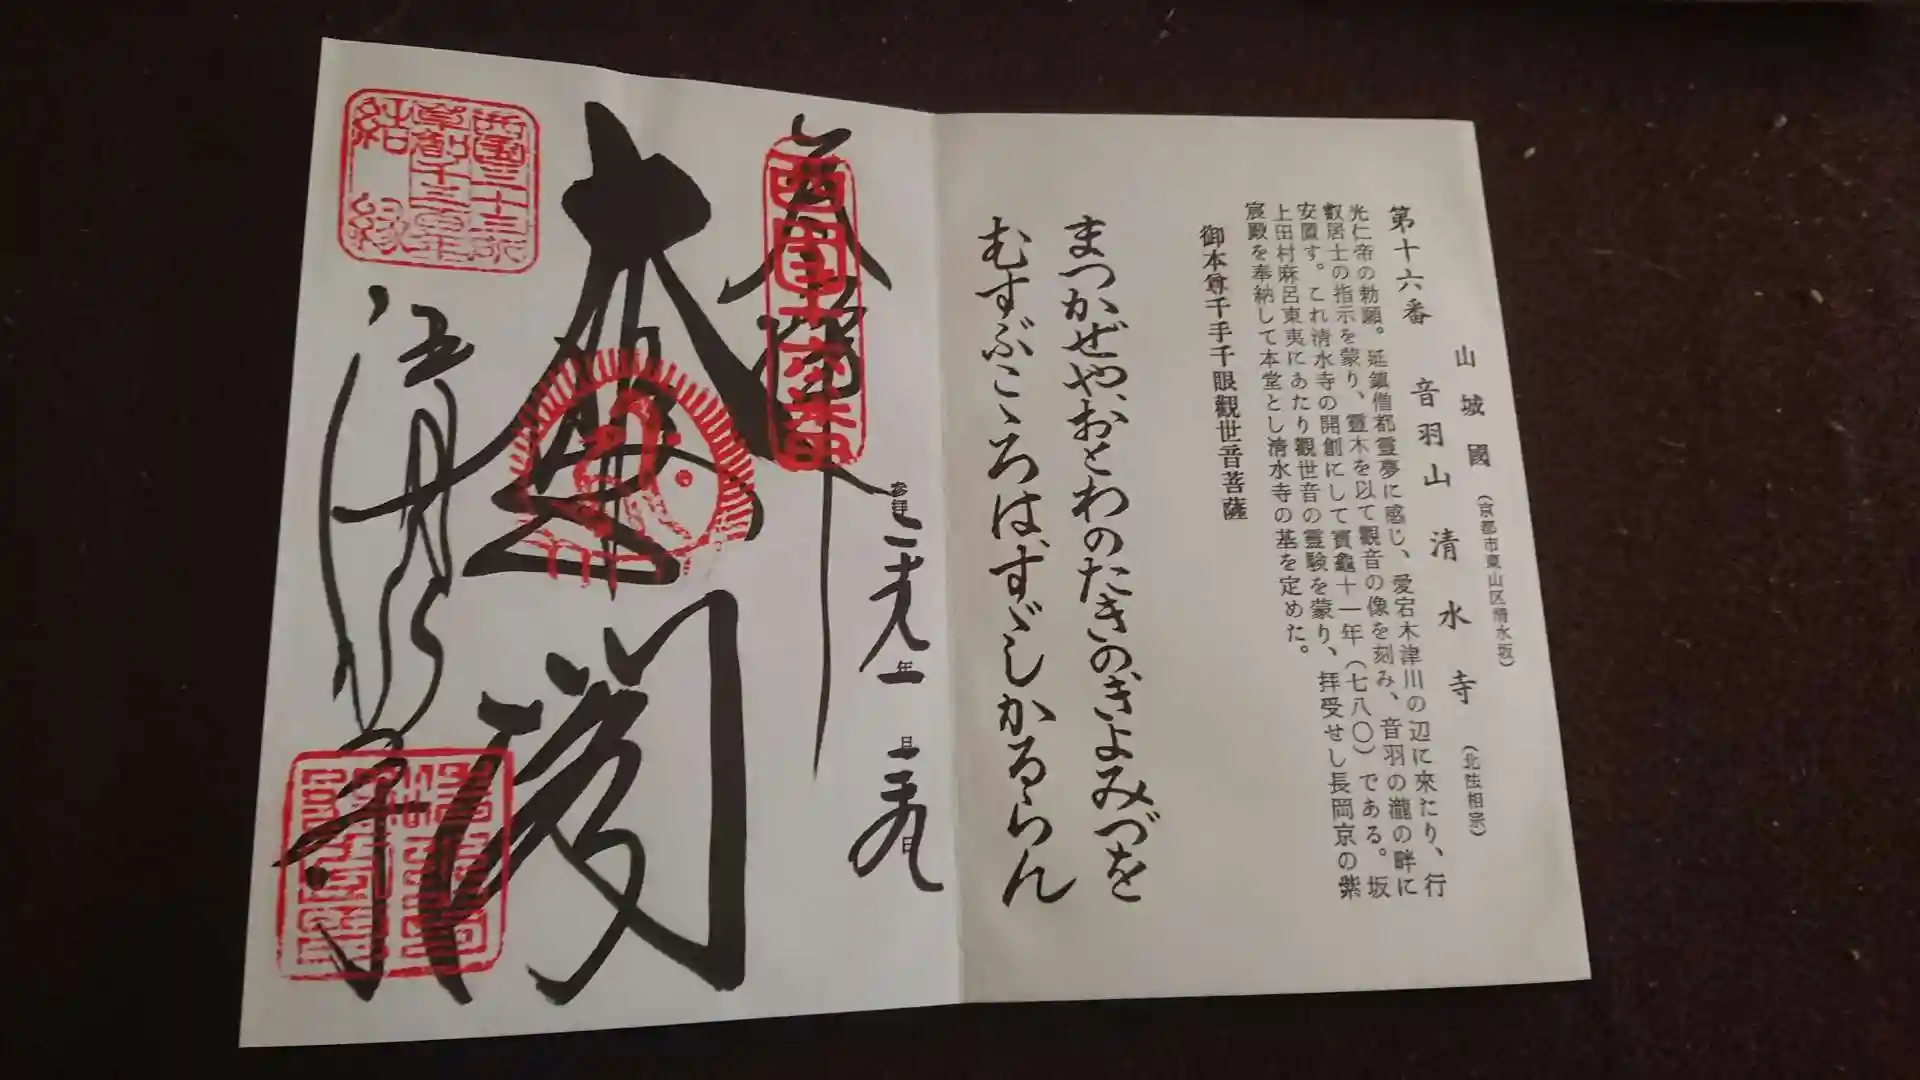 山城國（京都市東山区清水坂）
第十六番 音羽山 清水寺（北法相宗）
光仁帝の勅願。延鎮僧都霊夢に感じ、愛宕木津川の辺に來たり、行
叡居士の指示を蒙り、靈木を以て觀音の像を刻み、音羽の瀧の畔に
安置す。これ清水寺の開創にして寳龜十一年（七八〇）である。坂
上田村麻呂東夷にあたり觀世音の霊験を蒙り、拝受せし長岡京の紫
宸殿を奉納して本堂とし清水寺の基を定めた。
御本尊千手千眼觀世音菩薩
まつかぜや、おとわのたきの、きよみづを
むすぶこゝろは、すゞしかるらん
奉拝
西国十六番
参拝 二十九年 一月 二九日
大悲閣
清水寺
西國三十三所
草創千三百年
結縁